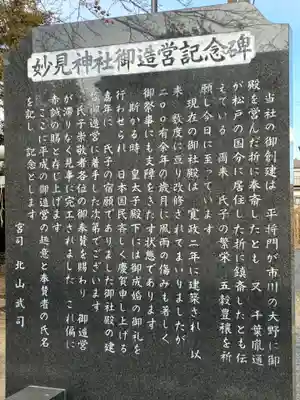 妙見神社御造営記念碑
当社の御創建は、平将門が市川の大野に御
殿を営んだ折に奉斎したとも、又、千葉胤通
が松戸の国分に居住した折に鎮斎したとも伝
えている。爾来、氏子の繁栄、五穀豊穣を祈
願し今日に至っています。
現在の御社殿は、寛政二年に建築され、以
来、数度に亘り改修されてまいりましたが、
二〇〇有余年の歳月に風雨の傷みも著しく
御祭事にも支障をきたす状態であります。
斯かる時、皇太子殿下には御成婚の御礼を
行わせられ、日本国民斉しく慶賀申し上げる
嘉年に、氏子の宿願でありました御社殿の建
御造営に着手した次第でございます。
氏子崇敬者各位の御奉賛を賜わり、御造営
が滞りなく見事に完工されました。これ偏に
赤誠の賜と存じ上げます。
ここに平成の御造営の趣意と奉賛者の氏名
を記し、記念とします。
宮司 北山武司